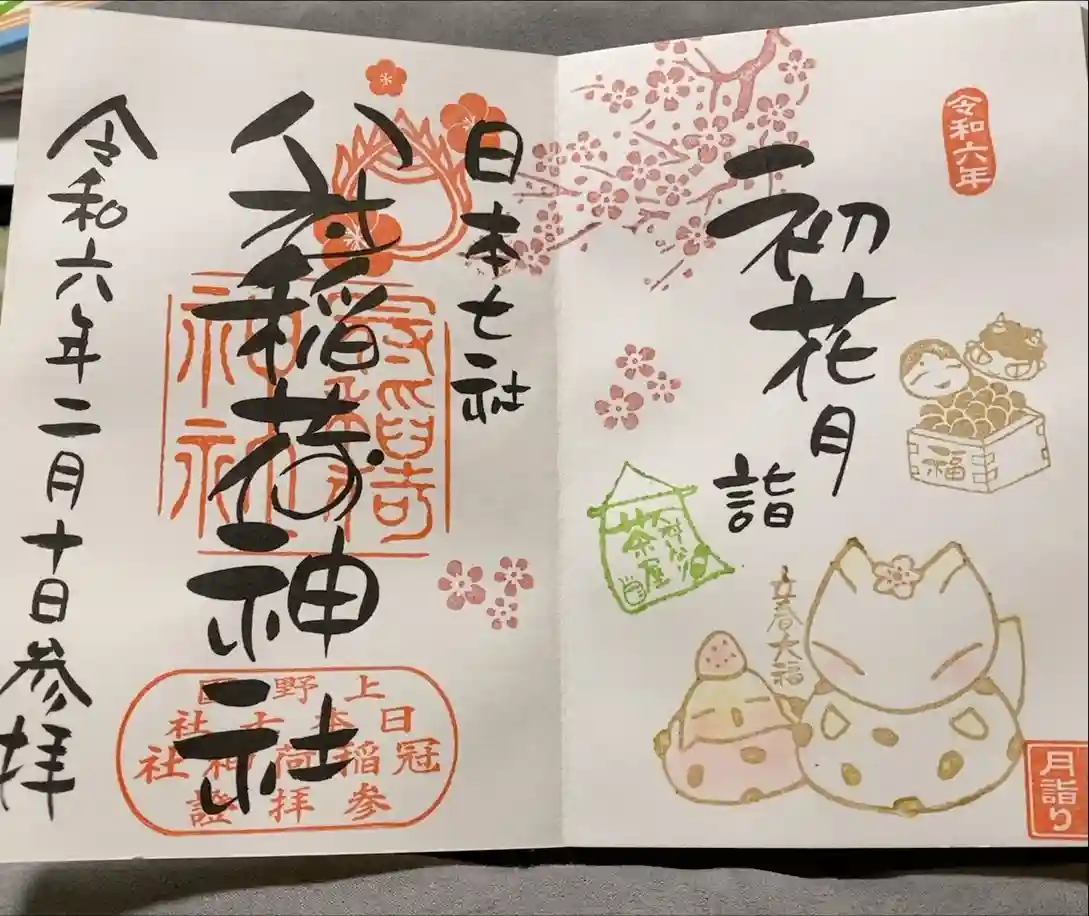 令和六年
初花月
詣
福
いなり
茶屋
立春大福
月詣り
日本七社
冠稲荷神社
上野國
日本七社
冠稲荷神社
参拝證
令和六年二月十日参拝